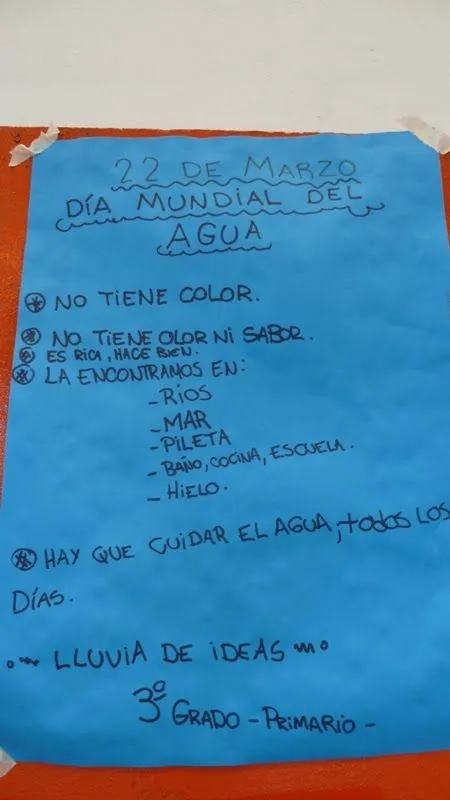 22 DE MARZO
DÍA MUNDIAL DEL
AGUA
NO TIENE COLOR.
NO TIENE OLOR NI SABOR.
ES RICA, HACE BIEN.
LA ENCONTRAMOS EN:
- RÍOS
- MAR
- PILETA
- BAÑO, COCINA, ESCUELA.
- HIELO.
HAY QUE CUIDAR EL AGUA, todos LOS
DÍAS.
LLUVIA DE IDEAS
3º GRADO - PRIMARIO -